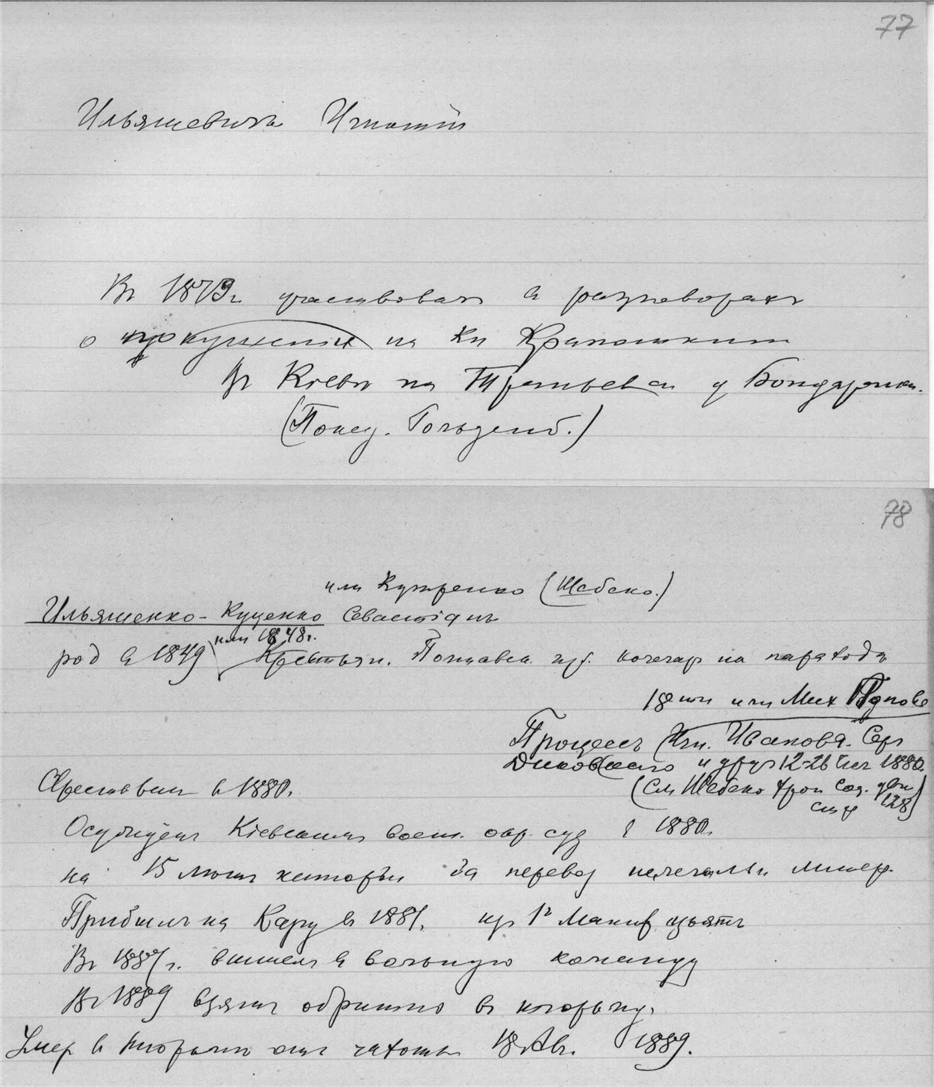 77
Ильяшевичъ Игнатій
Въ 1879г участвовалъ в разговорахъ
о покушеніи на Кн Крапоткина
Въ Кіевѣ на у Бондаренки.
(Показ. Гольденб.)
78
или Кутренко (Шебеко.)
Ильяшенко-Куценко Севастіанъ
или 1848г.
род в 1849 Крестьян. Полтавск. губ. кочегар на параходѣ
или Мих Попова
Процессъ Игн. Иванова. Сер
и друг 12-26 1880.
(См Шебеко Хрон Соц. движ
стр 128)
Арестованъ в 1880.
Осужденъ Кіевскимъ воен. окр. суд в 1880.
на 15 лѣтъ каторги за перевоз нелегальн. литер.
Прибылъ на Кару в 1881. Маниф.
Въ 1887г. вышелъ в вольную команду
Въ 1889 взятъ обратно в каторгу.
Умер в отъ чахотки 18 Авг. 1889.